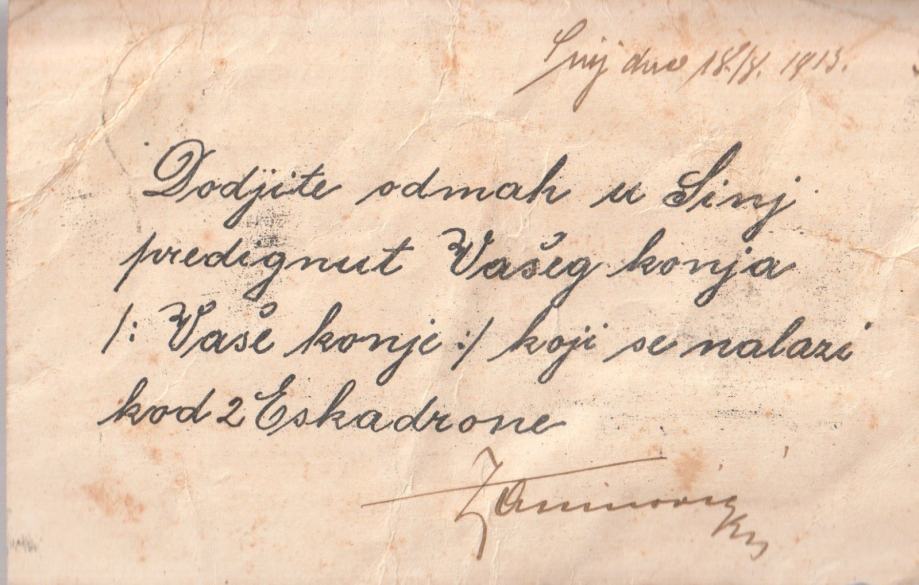 Sinj dne 18./8. 1913.
Dodjite odmah u Sinj
predignut Vašeg konja
/: Vaše konje :/ koji se nalazi
kod 2 Eskadrone